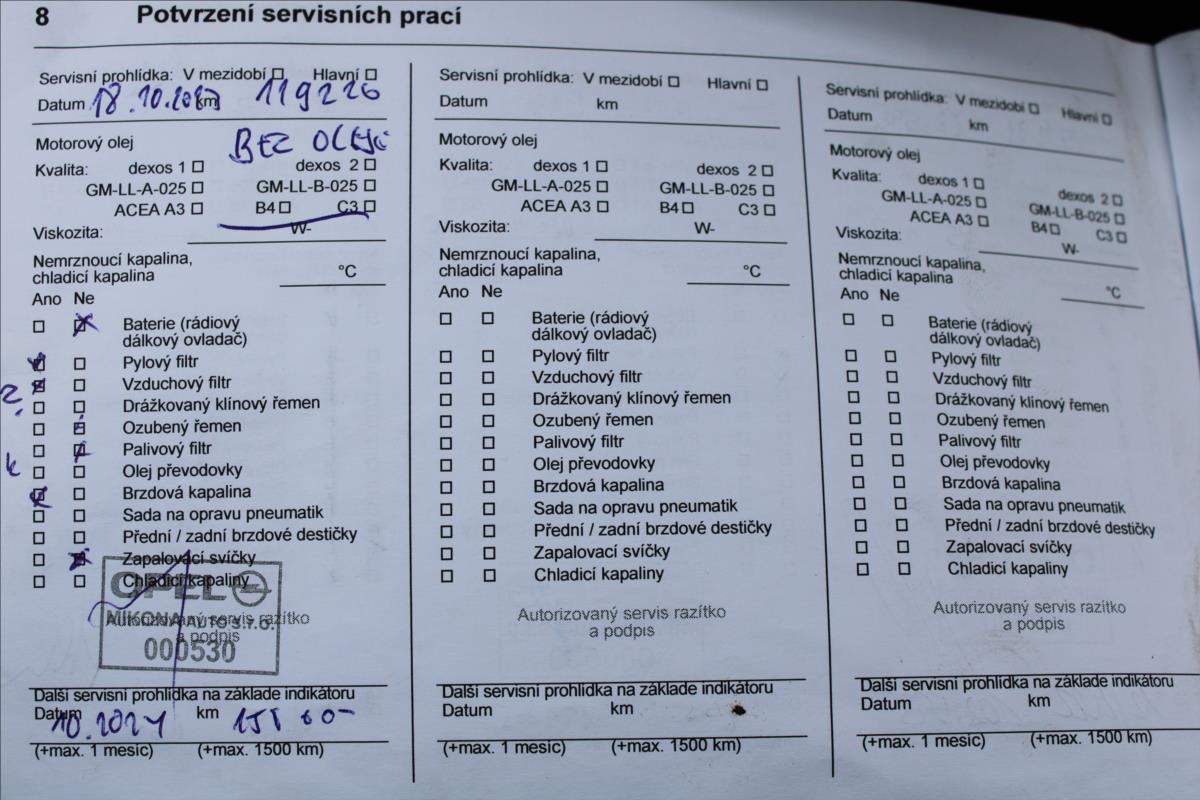 8 Potvrzení servisních prací
Servisní prohlídka: V mezidobí Hlavní
Datum 18.10. km 119226
Motorový olej BEZ OLEJE
Kvalita: dexos 1 dexos 2
GM-LL-A-025 GM-LL-B-025
ACEA A3 B4 C3
Viskozita: W-
Nemrznoucí kapalina,
chladicí kapalina °C
Ano Ne
Baterie (rádiový
dálkový ovladač)
Pylový filtr
Vzduchový filtr
Drážkovaný klínový řemen
Ozubený řemen
Palivový filtr
Olej převodovky
Brzdová kapalina
Sada na opravu pneumatik
Přední / zadní brzdové destičky
Zapalovací svíčky
Chladicí kapaliny
OPEL
MIKONA AUTO s.r.o.
Autorizovaný servis razítko
a podpis
000530
Další servisní prohlídka na základe indikátoru
Datum 10.2024 km
(+max. 1 mesic) (+max. 1500 km)
Servisní prohlídka: V mezidobí Hlavní
Datum km
Motorový olej
Kvalita: dexos 1 dexos 2
GM-LL-A-025 GM-LL-B-025
ACEA A3 B4 C3
Viskozita: W-
Nemrznoucí kapalina,
chladicí kapalina °C
Ano Ne
Baterie (rádiový
dálkový ovladač)
Pylový filtr
Vzduchový filtr
Drážkovaný klínový řemen
Ozubený řemen
Palivový filtr
Olej převodovky
Brzdová kapalina
Sada na opravu pneumatik
Přední / zadní brzdové destičky
Zapalovací svíčky
Chladicí kapaliny
Autorizovaný servis razítko
a podpis
Další servisní prohlídka na základe indikátoru
Datum km
(+max. 1 mesic) (+max. 1500 km)
Servisní prohlídka: V mezidobí Hlavní
Datum km
Motorový olej
Kvalita: dexos 1 dexos 2
GM-LL-A-025 GM-LL-B-025
ACEA A3 B4 C3
Viskozita: W-
Nemrznoucí kapalina,
chladicí kapalina °C
Ano Ne
Baterie (rádiový
dálkový ovladač)
Pylový filtr
Vzduchový filtr
Drážkovaný klínový řemen
Ozubený řemen
Palivový filtr
Olej převodovky
Brzdová kapalina
Sada na opravu pneumatik
Přední / zadní brzdové destičky
Zapalovací svíčky
Chladicí kapaliny
Autorizovaný servis razítko
a podpis
Další servisní prohlídka na základe indikátoru
Datum km
(+max. 1 mesic) (+max. 1500 km)